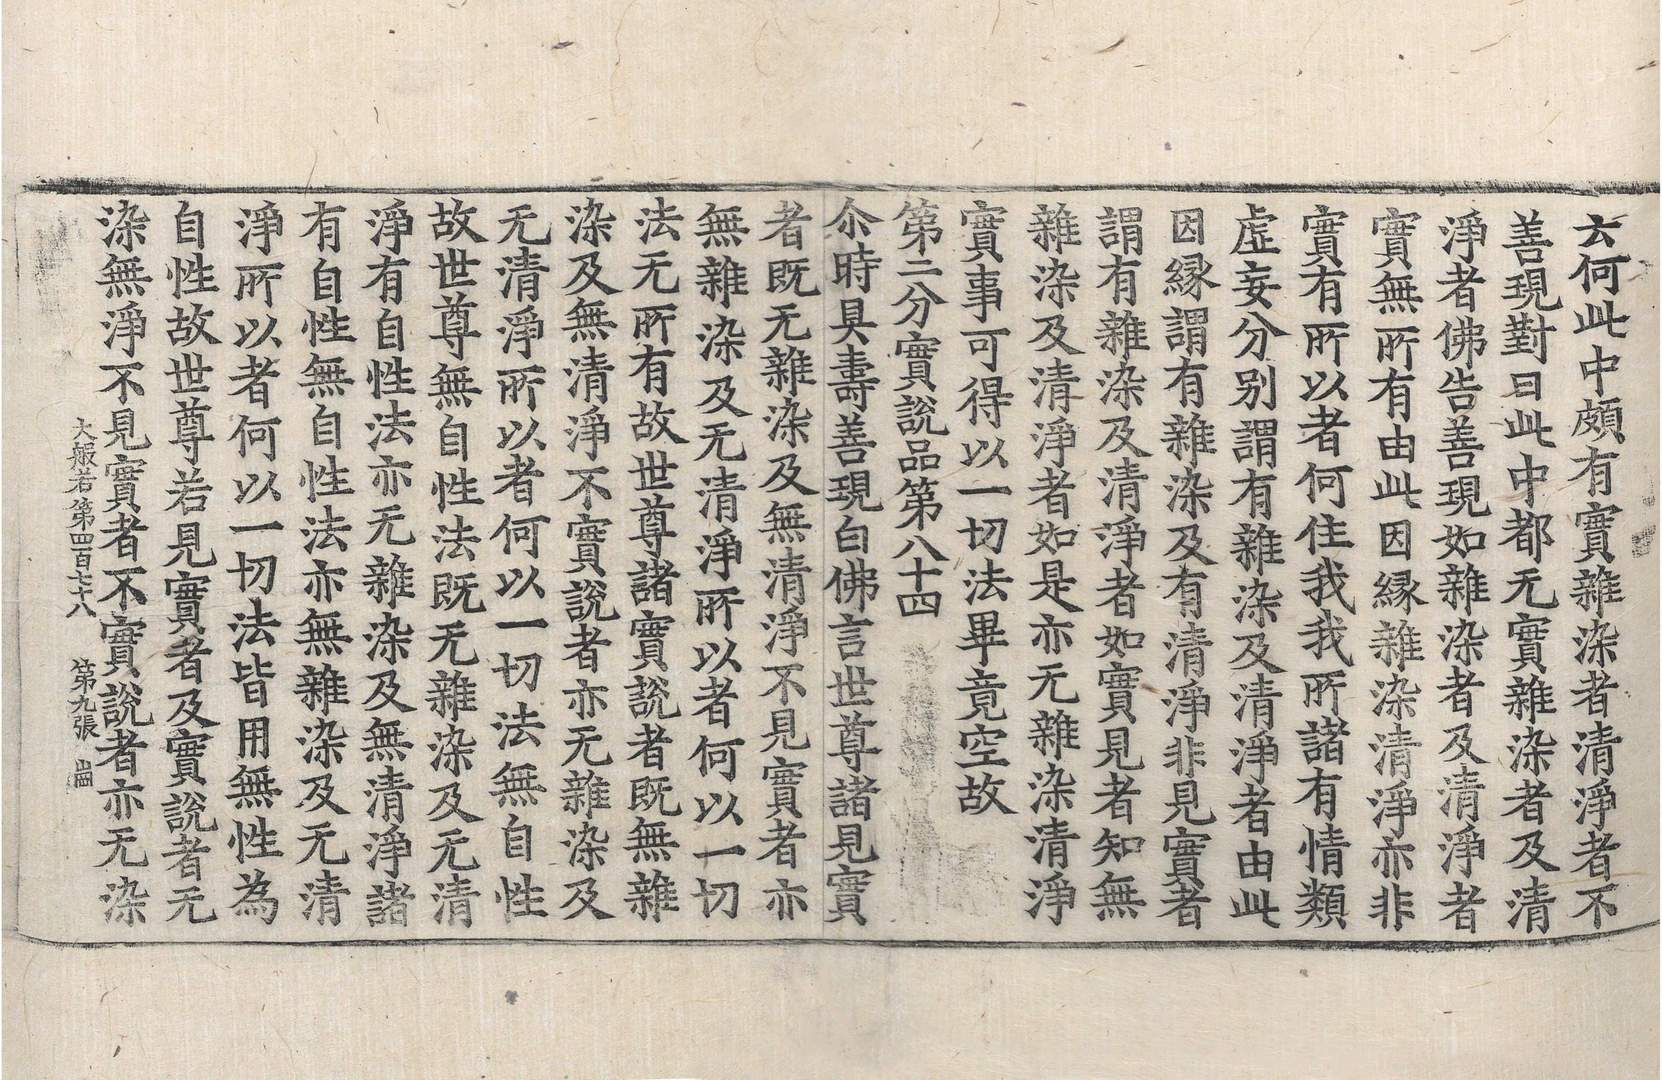 云何此中頗有實雜染者清淨者不
善現對曰此中都无實雜染者及清
淨者佛告善現如雜染者及清淨者
實無所有由此因緣雜染清淨亦非
實有所以者何住我我所諸有情類
虛妄分別謂有雜染及清淨者由此
因緣謂有雜染及有清淨非見實者
謂有雜染及清淨者如實見者知無
雜染及清淨者如是亦无雜染清淨
實事可得以一切法畢竟空故
第二分實說品第八十四
尒時具壽善現白佛言世尊諸見實
者既无雜染及無清淨不見實者亦
無雜染及无清淨所以者何以一切
法无所有故世尊諸實說者既無雜
染及無清淨不實說者亦无雜染及
无清淨所以者何以一切法無自性
故世尊無自性法既无雜染及无清
淨有自性法亦无雜染及無清淨諸
有自性無自性法亦無雜染及无清
淨所以者何以一切法皆用無性為
自性故世尊若見實者及實說者无
染無淨不見實者不實說者亦无染
大般若第四百七十八 第九張 崗